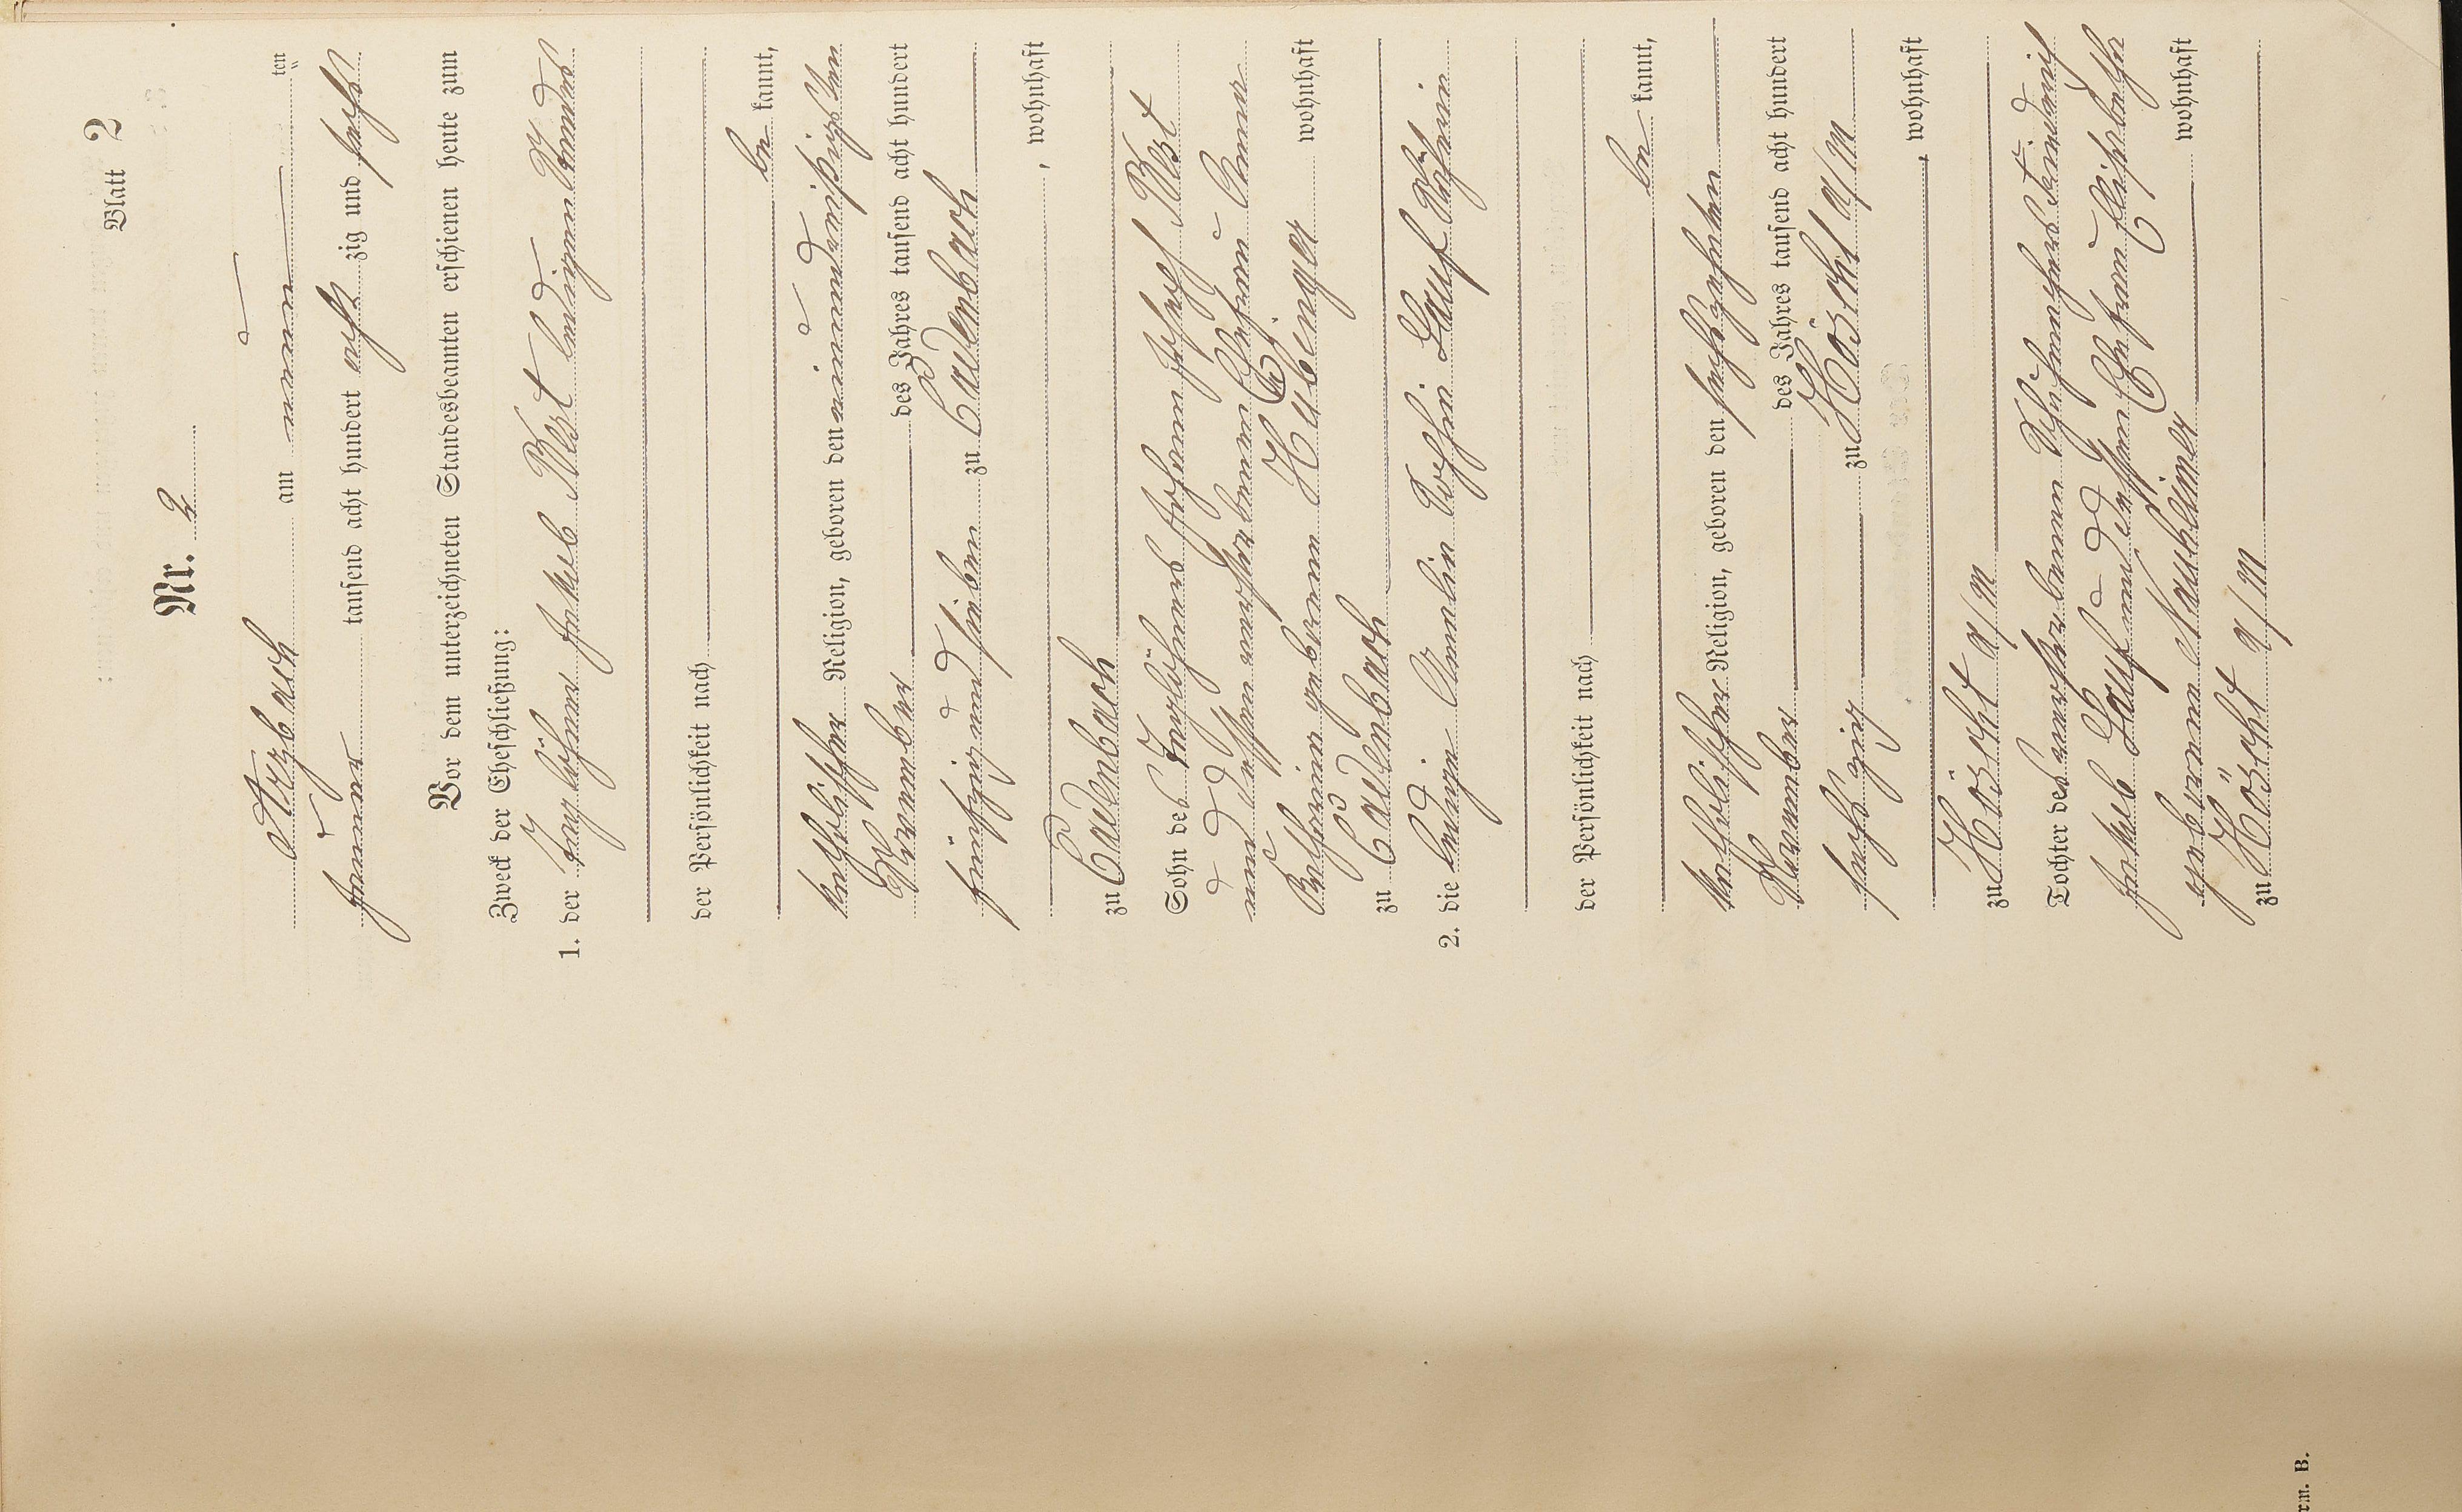 Blatt 2
Nr. 2
Arzbach am neun ten
Januar tausend acht hundert acht zig und sechs
Vor dem unterzeichneten Standesbeamten erschienen heute zum
Zweck der Eheschließung:
1. der Taglöhner Jakob Merz ledigen Standes
der Persönlichkeit nach
be kannt,
katholischer Religion, geboren den einunddreißigsten
Dezember des Jahres tausend acht hundert
fünfzig und sieben zu Cadenbach
, wohnhaft
zu Cadenbach
Sohn des Taglöhners Johann Josef Merz
und dessen verstorbenen Ehefrau Anna
Katharina geborenen Hübinger wohnhaft
zu Cadenbach
2. die ledige Amalie Sophie Lauf Näherin
der Persönlichkeit nach
be kannt,
katholischer Religion, geboren den sechszehnten
November des Jahres tausend acht hundert
sechszig zu Höchst a/M
, wohnhaft
zu Höchst a/M
Tochter des verstorbenen
Jakob Lauf und dessen Ehefrau Elisabetha
geborenen wohnhaft
zu Höchst a/M
rm. B.